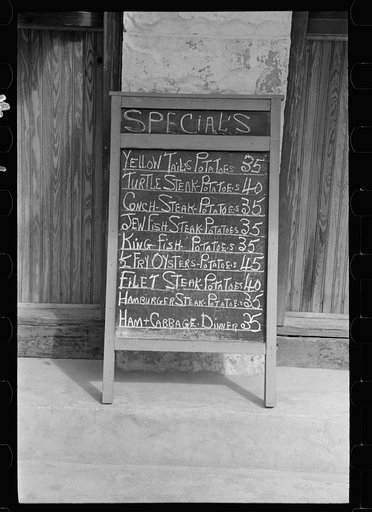 SPECIAL'S
YELLOW TAILS POTATOES 35
TURTLE STEAK-POTATOES 40
CONCH-STEAK-POTATOES 35
JEWFISH STEAK-POTATOES 35
KING-FISH-POTATOES 35
½ FRY OYSTERS-POTATOES 45
FILET STEAK POTATOES 40
HAMBURGER STEAK-POTATOES 35
HAM+CABBAGE-DINNER 35